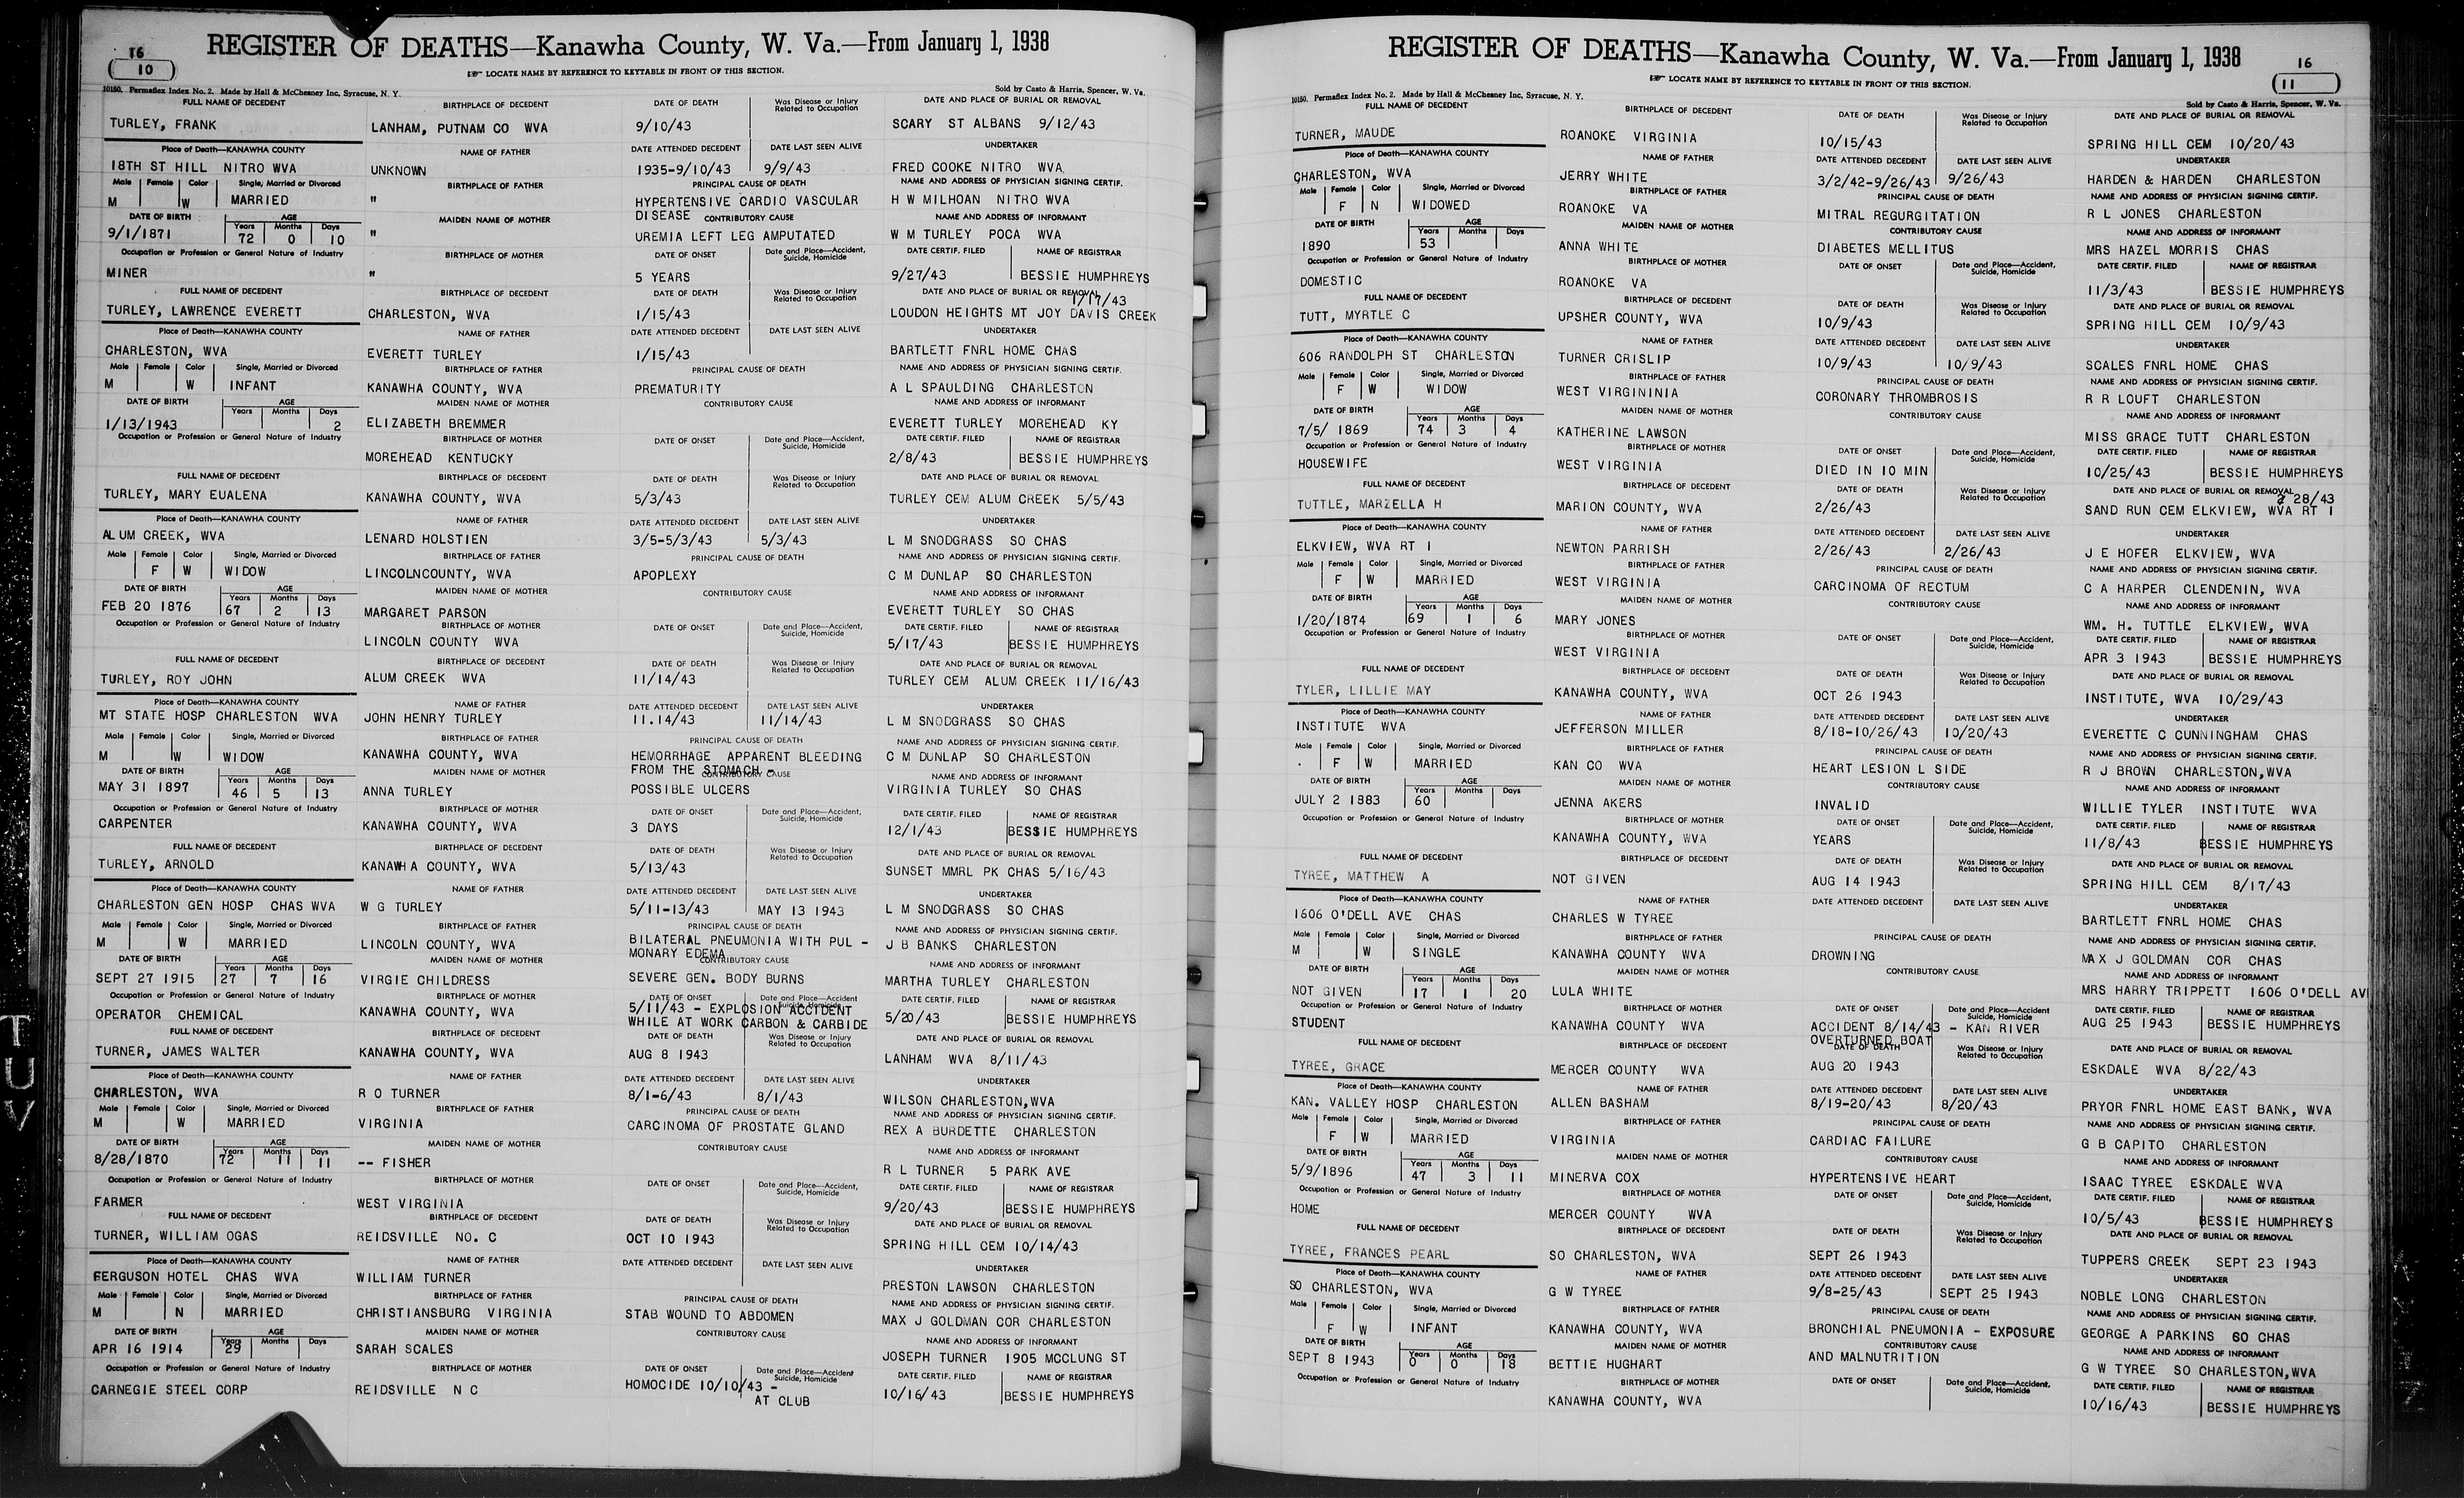 16
10
REGISTER OF DEATHS—Kanawha County, W. Va.—From January 1, 1938
LOCATE NAME BY REFERENCE TO KEYTABLE IN FRONT OF THIS SECTION.
10150. Permaflex Index No. 2. Made by Hall & McChesney Inc, Syracuse, N. Y. Sold by Casto & Harris, Spencer, W. Va.
FULL NAME OF DECEDENT BIRTHPLACE OF DECEDENT DATE OF DEATH Was Disease or Injury Related to Occupation DATE AND PLACE OF BURIAL OR REMOVAL
TURLEY, FRANK LANHAM, PUTNAM CO WVA 9/10/43 SCARY ST ALBANS 9/12/43
Place of Death—KANAWHA COUNTY NAME OF FATHER DATE ATTENDED DECEDENT DATE LAST SEEN ALIVE UNDERTAKER
18TH ST HILL NITRO WVA UNKNOWN 1935-9/10/43 9/9/43 FRED COOKE NITRO WVA.
Male Female Color Single, Married or Divorced BIRTHPLACE OF FATHER PRINCIPAL CAUSE OF DEATH NAME AND ADDRESS OF PHYSICIAN SIGNING CERTIF.
M W MARRIED " HYPERTENSIVE CARDIO VASCULAR H W MILHOAN NITRO WVA
DISEASE
DATE OF BIRTH AGE Years Months Days MAIDEN NAME OF MOTHER CONTRIBUTORY CAUSE NAME AND ADDRESS OF INFORMANT
9/1/1871 72 0 10 " UREMIA LEFT LEG AMPUTATED W M TURLEY POCA WVA
Occupation or Profession or General Nature of Industry BIRTHPLACE OF MOTHER DATE OF ONSET Date and Place—Accident, Suicide, Homicide DATE CERTIF. FILED NAME OF REGISTRAR
MINER " 5 YEARS 9/27/43 BESSIE HUMPHREYS
FULL NAME OF DECEDENT BIRTHPLACE OF DECEDENT DATE OF DEATH Was Disease or Injury Related to Occupation DATE AND PLACE OF BURIAL OR REMOVAL
1/17/43
TURLEY, LAWRENCE EVERETT CHARLESTON, WVA 1/15/43 LOUDON HEIGHTS MT JOY DAVIS CREEK
Place of Death—KANAWHA COUNTY NAME OF FATHER DATE ATTENDED DECEDENT DATE LAST SEEN ALIVE UNDERTAKER
CHARLESTON, WVA EVERETT TURLEY 1/15/43 BARTLETT FNRL HOME CHAS
Male Female Color Single, Married or Divorced BIRTHPLACE OF FATHER PRINCIPAL CAUSE OF DEATH NAME AND ADDRESS OF PHYSICIAN SIGNING CERTIF.
M W INFANT KANAWHA COUNTY, WVA PREMATURITY A L SPAULDING CHARLESTON
DATE OF BIRTH AGE Years Months Days MAIDEN NAME OF MOTHER CONTRIBUTORY CAUSE NAME AND ADDRESS OF INFORMANT
1/13/1943 2 ELIZABETH BREMMER EVERETT TURLEY MOREHEAD KY
Occupation or Profession or General Nature of Industry BIRTHPLACE OF MOTHER DATE OF ONSET Date and Place—Accident, Suicide, Homicide DATE CERTIF. FILED NAME OF REGISTRAR
MOREHEAD KENTUCKY 2/8/43 BESSIE HUMPHREYS
FULL NAME OF DECEDENT BIRTHPLACE OF DECEDENT DATE OF DEATH Was Disease or Injury Related to Occupation DATE AND PLACE OF BURIAL OR REMOVAL
TURLEY, MARY EUALENA KANAWHA COUNTY, WVA 5/3/43 TURLEY CEM ALUM CREEK 5/5/43
Place of Death—KANAWHA COUNTY NAME OF FATHER DATE ATTENDED DECEDENT DATE LAST SEEN ALIVE UNDERTAKER
ALUM CREEK, WVA LENARD HOLSTIEN 3/5-5/3/43 5/3/43 L M SNODGRASS SO CHAS
Male Female Color Single, Married or Divorced BIRTHPLACE OF FATHER PRINCIPAL CAUSE OF DEATH NAME AND ADDRESS OF PHYSICIAN SIGNING CERTIF.
F W WIDOW LINCOLNCOUNTY, WVA APOPLEXY C M DUNLAP SO CHARLESTON
DATE OF BIRTH AGE Years Months Days MAIDEN NAME OF MOTHER CONTRIBUTORY CAUSE NAME AND ADDRESS OF INFORMANT
FEB 20 1876 67 2 13 MARGARET PARSON EVERETT TURLEY SO CHAS
Occupation or Profession or General Nature of Industry BIRTHPLACE OF MOTHER DATE OF ONSET Date and Place—Accident, Suicide, Homicide DATE CERTIF. FILED NAME OF REGISTRAR
LINCOLN COUNTY WVA 5/17/43 BESSIE HUMPHREYS
FULL NAME OF DECEDENT BIRTHPLACE OF DECEDENT DATE OF DEATH Was Disease or Injury Related to Occupation DATE AND PLACE OF BURIAL OR REMOVAL
TURLEY, ROY JOHN ALUM CREEK WVA 11/14/43 TURLEY CEM ALUM CREEK 11/16/43
Place of Death—KANAWHA COUNTY NAME OF FATHER DATE ATTENDED DECEDENT DATE LAST SEEN ALIVE UNDERTAKER
MT STATE HOSP CHARLESTON WVA JOHN HENRY TURLEY 11.14/43 11/14/43 L M SNODGRASS SO CHAS
Male Female Color Single, Married or Divorced BIRTHPLACE OF FATHER PRINCIPAL CAUSE OF DEATH NAME AND ADDRESS OF PHYSICIAN SIGNING CERTIF.
M W WIDOW KANAWHA COUNTY, WVA HEMORRHAGE APPARENT BLEEDING C M DUNLAP SO CHARLESTON
FROM THE STOMACH -
DATE OF BIRTH AGE Years Months Days MAIDEN NAME OF MOTHER CONTRIBUTORY CAUSE NAME AND ADDRESS OF INFORMANT
MAY 31 1897 46 5 13 ANNA TURLEY POSSIBLE ULCERS VIRGINIA TURLEY SO CHAS
Occupation or Profession or General Nature of Industry BIRTHPLACE OF MOTHER DATE OF ONSET Date and Place—Accident, Suicide, Homicide DATE CERTIF. FILED NAME OF REGISTRAR
CARPENTER KANAWHA COUNTY, WVA 3 DAYS 12/1/43 BESSIE HUMPHREYS
FULL NAME OF DECEDENT BIRTHPLACE OF DECEDENT DATE OF DEATH Was Disease or Injury Related to Occupation DATE AND PLACE OF BURIAL OR REMOVAL
TURLEY, ARNOLD KANAWHA COUNTY, WVA 5/13/43 SUNSET MMRL PK CHAS 5/16/43
Place of Death—KANAWHA COUNTY NAME OF FATHER DATE ATTENDED DECEDENT DATE LAST SEEN ALIVE UNDERTAKER
CHARLESTON GEN HOSP CHAS WVA W G TURLEY 5/11-13/43 MAY 13 1943 L M SNODGRASS SO CHAS
Male Female Color Single, Married or Divorced BIRTHPLACE OF FATHER PRINCIPAL CAUSE OF DEATH NAME AND ADDRESS OF PHYSICIAN SIGNING CERTIF.
M W MARRIED LINCOLN COUNTY, WVA BILATERAL PNEUMONIA WITH PUL - J B BANKS CHARLESTON
MONARY EDEMA
DATE OF BIRTH AGE Years Months Days MAIDEN NAME OF MOTHER CONTRIBUTORY CAUSE NAME AND ADDRESS OF INFORMANT
SEPT 27 1915 27 7 16 VIRGIE CHILDRESS SEVERE GEN. BODY BURNS MARTHA TURLEY CHARLESTON
Occupation or Profession or General Nature of Industry BIRTHPLACE OF MOTHER DATE OF ONSET Date and Place—Accident Suicide, Homicide DATE CERTIF. FILED NAME OF REGISTRAR
OPERATOR CHEMICAL KANAWHA COUNTY, WVA 5/11/43 - EXPLOSION ACCIDENT 5/20/43 BESSIE HUMPHREYS
WHILE AT WORK CARBON & CARBIDE
FULL NAME OF DECEDENT BIRTHPLACE OF DECEDENT DATE OF DEATH Was Disease or Injury Related to Occupation DATE AND PLACE OF BURIAL OR REMOVAL
TURNER, JAMES WALTER KANAWHA COUNTY, WVA AUG 8 1943 LANHAM WVA 8/11/43
Place of Death—KANAWHA COUNTY NAME OF FATHER DATE ATTENDED DECEDENT DATE LAST SEEN ALIVE UNDERTAKER
CHARLESTON, WVA R O TURNER 8/1-6/43 8/1/43 WILSON CHARLESTON,WVA
Male Female Color Single, Married or Divorced BIRTHPLACE OF FATHER PRINCIPAL CAUSE OF DEATH NAME AND ADDRESS OF PHYSICIAN SIGNING CERTIF.
M W MARRIED VIRGINIA CARCINOMA OF PROSTATE GLAND REX A BURDETTE CHARLESTON
DATE OF BIRTH AGE Years Months Days MAIDEN NAME OF MOTHER CONTRIBUTORY CAUSE NAME AND ADDRESS OF INFORMANT
8/28/1870 72 11 11 -- FISHER R L TURNER 5 PARK AVE
Occupation or Profession or General Nature of Industry BIRTHPLACE OF MOTHER DATE OF ONSET Date and Place—Accident, Suicide, Homicide DATE CERTIF. FILED NAME OF REGISTRAR
FARMER WEST VIRGINIA 9/20/43 BESSIE HUMPHREYS
FULL NAME OF DECEDENT BIRTHPLACE OF DECEDENT DATE OF DEATH Was Disease or Injury Related to Occupation DATE AND PLACE OF BURIAL OR REMOVAL
TURNER, WILLIAM OGAS REIDSVILLE NO. C OCT 10 1943 SPRING HILL CEM 10/14/43
Place of Death—KANAWHA COUNTY NAME OF FATHER DATE ATTENDED DECEDENT DATE LAST SEEN ALIVE UNDERTAKER
FERGUSON HOTEL CHAS WVA WILLIAM TURNER PRESTON LAWSON CHARLESTON
Male Female Color Single, Married or Divorced BIRTHPLACE OF FATHER PRINCIPAL CAUSE OF DEATH NAME AND ADDRESS OF PHYSICIAN SIGNING CERTIF.
M N MARRIED CHRISTIANSBURG VIRGINIA STAB WOUND TO ABDOMEN MAX J GOLDMAN COR CHARLESTON
DATE OF BIRTH AGE Years Months Days MAIDEN NAME OF MOTHER CONTRIBUTORY CAUSE NAME AND ADDRESS OF INFORMANT
APR 16 1914 29 SARAH SCALES JOSEPH TURNER 1905 MCCLUNG ST
Occupation or Profession or General Nature of Industry BIRTHPLACE OF MOTHER DATE OF ONSET Date and Place—Accident Suicide, Homicide DATE CERTIF. FILED NAME OF REGISTRAR
CARNEGIE STEEL CORP REIDSVILLE N C HOMOCIDE 10/10/43 - 10/16/43 BESSIE HUMPHREYS
AT CLUB
T
U
V
REGISTER OF DEATHS—Kanawha County, W. Va.—From January 1, 1938
16
11
LOCATE NAME BY REFERENCE TO KEYTABLE IN FRONT OF THIS SECTION.
10150. Permaflex Index No. 2. Made by Hall & McChesney Inc, Syracuse, N. Y. Sold by Casto & Harris, Spencer, W. Va.
FULL NAME OF DECEDENT BIRTHPLACE OF DECEDENT DATE OF DEATH Was Disease or Injury Related to Occupation DATE AND PLACE OF BURIAL OR REMOVAL
TURNER, MAUDE ROANOKE VIRGINIA 10/15/43 SPRING HILL CEM 10/20/43
Place of Death—KANAWHA COUNTY NAME OF FATHER DATE ATTENDED DECEDENT DATE LAST SEEN ALIVE UNDERTAKER
CHARLESTON, WVA JERRY WHITE 3/2/42-9/26/43 9/26/43 HARDEN & HARDEN CHARLESTON
Male Female Color Single, Married or Divorced BIRTHPLACE OF FATHER PRINCIPAL CAUSE OF DEATH NAME AND ADDRESS OF PHYSICIAN SIGNING CERTIF.
F N WIDOWED ROANOKE VA MITRAL REGURGITATION R L JONES CHARLESTON
DATE OF BIRTH AGE Years Months Days MAIDEN NAME OF MOTHER CONTRIBUTORY CAUSE NAME AND ADDRESS OF INFORMANT
1890 53 ANNA WHITE DIABETES MELLITUS MRS HAZEL MORRIS CHAS
Occupation or Profession or General Nature of Industry BIRTHPLACE OF MOTHER DATE OF ONSET Date and Place—Accident, Suicide, Homicide DATE CERTIF. FILED NAME OF REGISTRAR
DOMESTIC ROANOKE VA 11/3/43 BESSIE HUMPHREYS
FULL NAME OF DECEDENT BIRTHPLACE OF DECEDENT DATE OF DEATH Was Disease or Injury Related to Occupation DATE AND PLACE OF BURIAL OR REMOVAL
TUTT, MYRTLE C UPSHER COUNTY, WVA 10/9/43 SPRING HILL CEM 10/9/43
Place of Death—KANAWHA COUNTY NAME OF FATHER DATE ATTENDED DECEDENT DATE LAST SEEN ALIVE UNDERTAKER
606 RANDOLPH ST CHARLESTON TURNER CRISLIP 10/9/43 10/9/43 SCALES FNRL HOME CHAS
Male Female Color Single, Married or Divorced BIRTHPLACE OF FATHER PRINCIPAL CAUSE OF DEATH NAME AND ADDRESS OF PHYSICIAN SIGNING CERTIF.
F W WIDOW WEST VIRGININIA CORONARY THROMBROSIS R R LOUFT CHARLESTON
DATE OF BIRTH AGE Years Months Days MAIDEN NAME OF MOTHER CONTRIBUTORY CAUSE NAME AND ADDRESS OF INFORMANT
7/5/ 1869 74 3 4 KATHERINE LAWSON MISS GRACE TUTT CHARLESTON
Occupation or Profession or General Nature of Industry BIRTHPLACE OF MOTHER DATE OF ONSET Date and Place—Accident, Suicide, Homicide DATE CERTIF. FILED NAME OF REGISTRAR
HOUSEWIFE WEST VIRGINIA DIED IN 10 MIN 10/25/43 BESSIE HUMPHREYS
FULL NAME OF DECEDENT BIRTHPLACE OF DECEDENT DATE OF DEATH Was Disease or Injury Related to Occupation DATE AND PLACE OF BURIAL OR REMOVAL
2 28/43
TUTTLE, MARZELLA H MARION COUNTY, WVA 2/26/43 SAND RUN CEM ELKVIEW, WVA RT 1
Place of Death—KANAWHA COUNTY NAME OF FATHER DATE ATTENDED DECEDENT DATE LAST SEEN ALIVE UNDERTAKER
ELKVIEW, WVA RT 1 NEWTON PARRISH 2/26/43 2/26/43 J E HOFER ELKVIEW, WVA
Male Female Color Single, Married or Divorced BIRTHPLACE OF FATHER PRINCIPAL CAUSE OF DEATH NAME AND ADDRESS OF PHYSICIAN SIGNING CERTIF.
F W MARRIED WEST VIRGINIA CARCINOMA OF RECTUM C A HARPER CLENDENIN, WVA
DATE OF BIRTH AGE Years Months Days MAIDEN NAME OF MOTHER CONTRIBUTORY CAUSE NAME AND ADDRESS OF INFORMANT
1/20/1874 69 1 6 MARY JONES WM. H. TUTTLE ELKVIEW, WVA
Occupation or Profession or General Nature of Industry BIRTHPLACE OF MOTHER DATE OF ONSET Date and Place—Accident, Suicide, Homicide DATE CERTIF. FILED NAME OF REGISTRAR
WEST VIRGINIA APR 3 1943 BESSIE HUMPHREYS
FULL NAME OF DECEDENT BIRTHPLACE OF DECEDENT DATE OF DEATH Was Disease or Injury Related to Occupation DATE AND PLACE OF BURIAL OR REMOVAL
TYLER, LILLIE MAY KANAWHA COUNTY, WVA OCT 26 1943 INSTITUTE, WVA 10/29/43
Place of Death—KANAWHA COUNTY NAME OF FATHER DATE ATTENDED DECEDENT DATE LAST SEEN ALIVE UNDERTAKER
INSTITUTE WVA JEFFERSON MILLER 8/18-10/26/43 10/20/43 EVERETTE C CUNNINGHAM CHAS
Male Female Color Single, Married or Divorced BIRTHPLACE OF FATHER PRINCIPAL CAUSE OF DEATH NAME AND ADDRESS OF PHYSICIAN SIGNING CERTIF.
. F W MARRIED KAN CO WVA HEART LESION L SIDE R J BROWN CHARLESTON,WVA
DATE OF BIRTH AGE Years Months Days MAIDEN NAME OF MOTHER CONTRIBUTORY CAUSE NAME AND ADDRESS OF INFORMANT
JULY 2 1883 60 JENNA AKERS INVALID WILLIE TYLER INSTITUTE WVA
Occupation or Profession or General Nature of Industry BIRTHPLACE OF MOTHER DATE OF ONSET Date and Place—Accident, Suicide, Homicide DATE CERTIF. FILED NAME OF REGISTRAR
KANAWHA COUNTY, WVA YEARS 11/8/43 BESSIE HUMPHREYS
FULL NAME OF DECEDENT BIRTHPLACE OF DECEDENT DATE OF DEATH Was Disease or Injury Related to Occupation DATE AND PLACE OF BURIAL OR REMOVAL
TYREE, MATTHEW A NOT GIVEN AUG 14 1943 SPRING HILL CEM 8/17/43
Place of Death—KANAWHA COUNTY NAME OF FATHER DATE ATTENDED DECEDENT DATE LAST SEEN ALIVE UNDERTAKER
1606 O'DELL AVE CHAS CHARLES W TYREE BARTLETT FNRL HOME CHAS
Male Female Color Single, Married or Divorced BIRTHPLACE OF FATHER PRINCIPAL CAUSE OF DEATH NAME AND ADDRESS OF PHYSICIAN SIGNING CERTIF.
M W SINGLE KANAWHA COUNTY WVA DROWNING MAX J GOLDMAN COR CHAS
DATE OF BIRTH AGE Years Months Days MAIDEN NAME OF MOTHER CONTRIBUTORY CAUSE NAME AND ADDRESS OF INFORMANT
NOT GIVEN 17 1 20 LULA WHITE MRS HARRY TRIPPETT 1606 O'DELL AV
Occupation or Profession or General Nature of Industry BIRTHPLACE OF MOTHER DATE OF ONSET Date and Place—Accident Suicide, Homicide DATE CERTIF. FILED NAME OF REGISTRAR
STUDENT KANAWHA COUNTY WVA ACCIDENT 8/14/43 - KAN RIVER AUG 25 1943 BESSIE HUMPHREYS
OVERTURNED BOAT
FULL NAME OF DECEDENT BIRTHPLACE OF DECEDENT DATE OF DEATH Was Disease or Injury Related to Occupation DATE AND PLACE OF BURIAL OR REMOVAL
TYREE, GRACE MERCER COUNTY WVA AUG 20 1943 ESKDALE WVA 8/22/43
Place of Death—KANAWHA COUNTY NAME OF FATHER DATE ATTENDED DECEDENT DATE LAST SEEN ALIVE UNDERTAKER
KAN. VALLEY HOSP CHARLESTON ALLEN BASHAM 8/19-20/43 8/20/43 PRYOR FNRL HOME EAST BANK, WVA
Male Female Color Single, Married or Divorced BIRTHPLACE OF FATHER PRINCIPAL CAUSE OF DEATH NAME AND ADDRESS OF PHYSICIAN SIGNING CERTIF.
F W MARRIED VIRGINIA CARDIAC FAILURE G B CAPITO CHARLESTON
DATE OF BIRTH AGE Years Months Days MAIDEN NAME OF MOTHER CONTRIBUTORY CAUSE NAME AND ADDRESS OF INFORMANT
5/9/1896 47 3 11 MINERVA COX HYPERTENSIVE HEART ISAAC TYREE ESKDALE WVA
Occupation or Profession or General Nature of Industry BIRTHPLACE OF MOTHER DATE OF ONSET Date and Place—Accident, Suicide, Homicide DATE CERTIF. FILED NAME OF REGISTRAR
HOME MERCER COUNTY WVA 10/5/43 BESSIE HUMPHREYS
FULL NAME OF DECEDENT BIRTHPLACE OF DECEDENT DATE OF DEATH Was Disease or Injury Related to Occupation DATE AND PLACE OF BURIAL OR REMOVAL
TYREE, FRANCES PEARL SO CHARLESTON, WVA SEPT 26 1943 TUPPERS CREEK SEPT 23 1943
Place of Death—KANAWHA COUNTY NAME OF FATHER DATE ATTENDED DECEDENT DATE LAST SEEN ALIVE UNDERTAKER
SO CHARLESTON, WVA G W TYREE 9/8-25/43 SEPT 25 1943 NOBLE LONG CHARLESTON
Male Female Color Single, Married or Divorced BIRTHPLACE OF FATHER PRINCIPAL CAUSE OF DEATH NAME AND ADDRESS OF PHYSICIAN SIGNING CERTIF.
F W INFANT KANAWHA COUNTY, WVA BRONCHIAL PNEUMONIA - EXPOSURE GEORGE A PARKINS SO CHAS
DATE OF BIRTH AGE Years Months Days MAIDEN NAME OF MOTHER CONTRIBUTORY CAUSE NAME AND ADDRESS OF INFORMANT
SEPT 8 1943 0 0 18 BETTIE HUGHART AND MALNUTRITION G W TYREE SO CHARLESTON,WVA
Occupation or Profession or General Nature of Industry BIRTHPLACE OF MOTHER DATE OF ONSET Date and Place—Accident, Suicide, Homicide DATE CERTIF. FILED NAME OF REGISTRAR
KANAWHA COUNTY, WVA 10/16/43 BESSIE HUMPHREYS